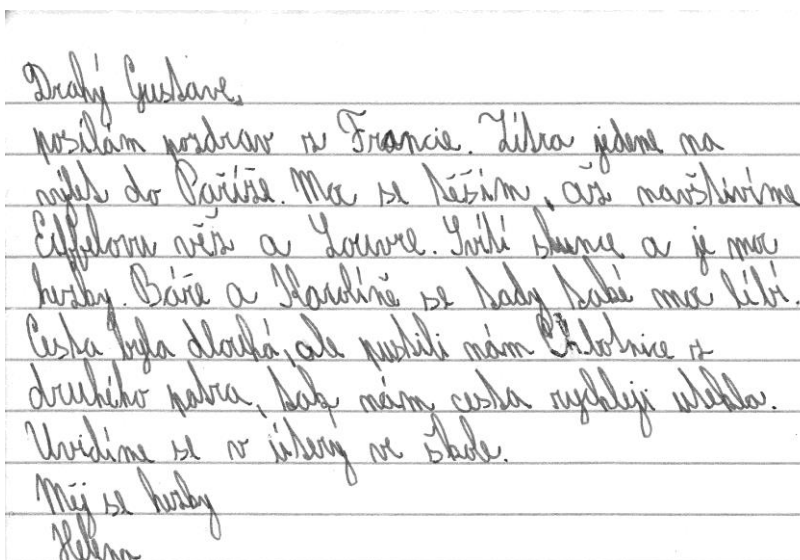 Drahý Gustave,
posílám pozdrav z Francie. Zítra jedeme na
výlet do Paříže. Moc se těším, až navštívíme
Eiffelovu věž a Louvre. Svítí slunce a je moc
hezky. Báře a Karolíně se tady také moc líbí.
Cesta byla dlouhá, ale pustili nám Chobotnice z
druhého patra, tak nám cesta rychleji utekla.
Uvidíme se v úterý ve škole.
Měj se hezky
Helena